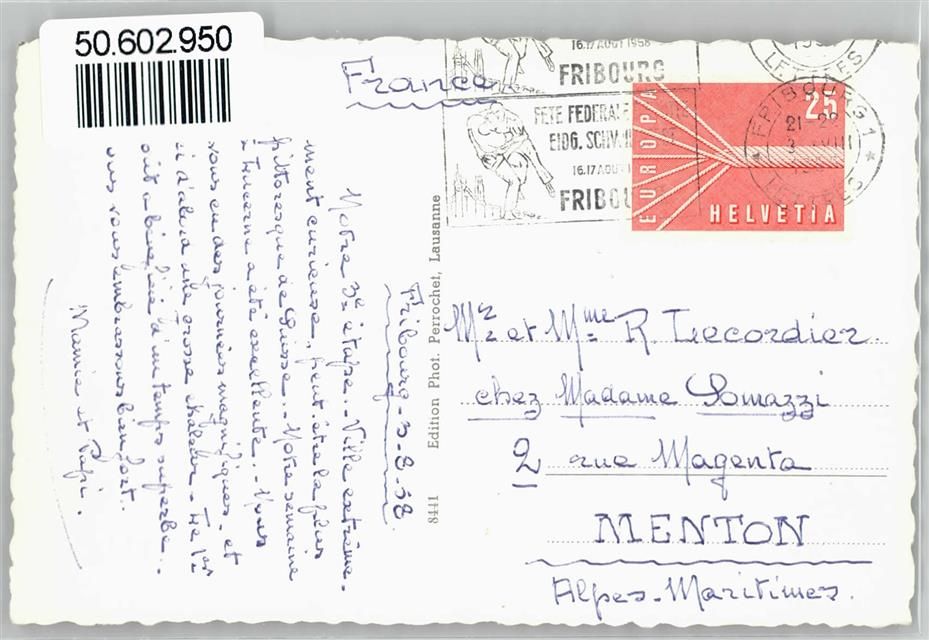 50.602.950
France
16.17 AOUT 1958
FRIBOURG
FETE FEDERALE
EIDG. SCHW
16.17 AOUT
FRIBOU
FRIBOURG 1
21-22
VIII
LETTRES
25
EUROPA
HELVETIA
Fribourg - 3-8-58
Notre 3e étape.. Ville extrême-
ment curieuse, peut être la plus
pittoresque de Suisse.. Notre semaine
à Lucerne a été excellente.. Nous
avons eu des journées magnifiques - et
il a fait une grosse chaleur - Le 1er
août a bénéficié d'un temps superbe..
nous vous embrassons bien fort..
Mamie et Papi.
8441 Edition Phot. Perrochet, Lausanne
Mr et Mme R. Lecordier.
chez Madame Somazzi
2 rue Magenta
MENTON
Alpes-Maritimes.